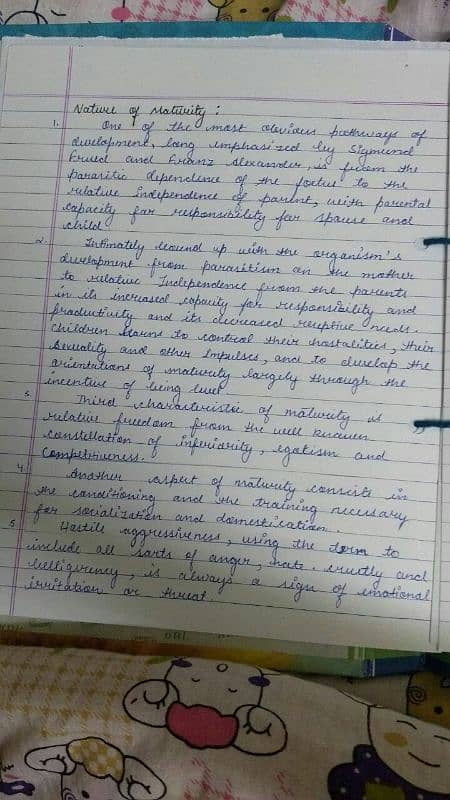 Nature of Maturity :
1. One of the most obvious pathways of
development, long emphasized by Sigmund
Freud and Franz Alexander, is from the
parasitic dependence of the foetus to the
relative independence of parent, with parental
capacity for responsibility for spouse and
child.
2. Intimately wound up with the organism's
development from parasitism on the mother
to relative Independence from the parents
in its increased capacity for responsibility and
productivity and its decreased receptive needs.
Children learns to control their hostalities, their
sexuality and other Impulses, and to develop the
orientations of maturity largely through the
incentive of being love.
3. Third characteristic of maturity is
relative freedom from the well known
constellation of inferiority, egotism and
Competiveness.
4. Another aspect of maturity consists in
the conditioning and the training necessary
for socialization and domestication.
5. Hostile aggressiveness, using the term to
include all sorts of anger, hate, cruelty and
belligerency, is always a sign of emotional
irritation or threat.